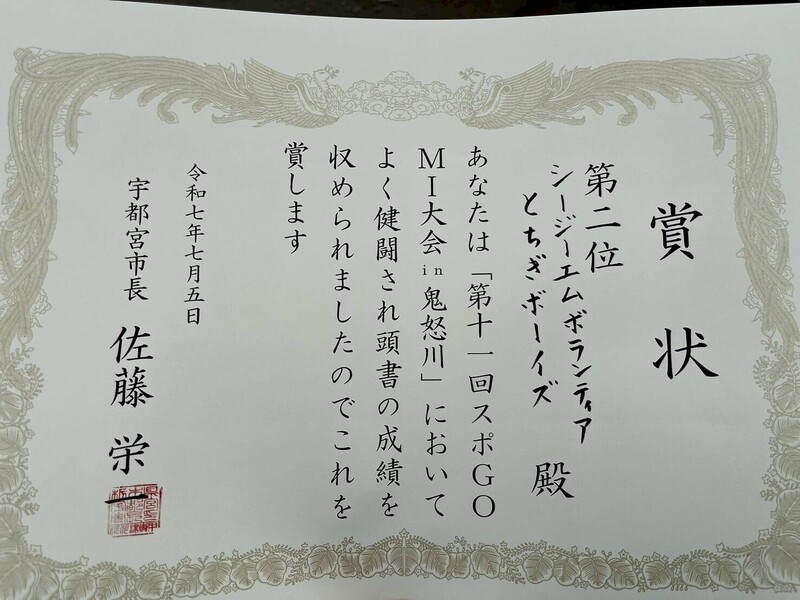 賞状
第二位
シージーエムボランティア
とちぎボーイズ 殿
あなたは「第十一回スポGO
MI大会in鬼怒川」において
よく健闘され頭書の成績を
収められましたのでこれを
賞します
令和七年七月五日
宇都宮市長 佐藤栄一